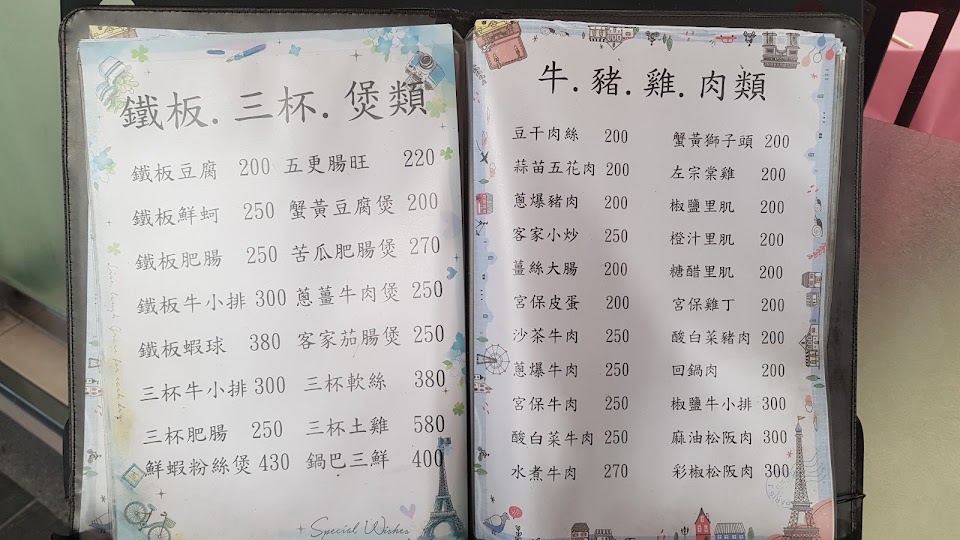 鐵板.三杯.煲類
鐵板豆腐 200 五更腸旺 220
鐵板鮮蚵 250 蟹黃豆腐煲 200
鐵板肥腸 250 苦瓜肥腸煲 270
鐵板牛小排 300 蔥薑牛肉煲 250
鐵板蝦球 380 客家茄腸煲 250
三杯牛小排 300 三杯軟絲 380
三杯肥腸 250 三杯土雞 580
鮮蝦粉絲煲 430 鍋巴三鮮 400
Special Wishes
牛.豬.雞.肉類
豆干肉絲 200 蟹黃獅子頭 200
蒜苗五花肉 200 左宗棠雞 200
蔥爆豬肉 200 椒鹽里肌 200
客家小炒 250 橙汁里肌 200
薑絲大腸 200 糖醋里肌 200
宮保皮蛋 200 宮保雞丁 200
沙茶牛肉 250 酸白菜豬肉 200
蔥爆牛肉 250 回鍋肉 200
宮保牛肉 250 椒鹽牛小排 300
酸白菜牛肉 250 麻油松阪肉 300
水煮牛肉 270 彩椒松阪肉 300